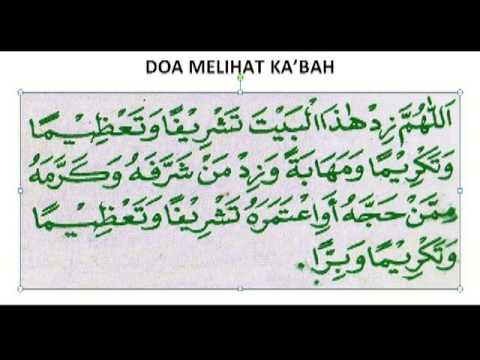 DOA MELIHAT KA'BAH
اَللّٰهُمَّ زِدْ هٰذَا الْبَيْتَ تَشْرِيْفًا وَتَعْظِيْمًا
وَتَكْرِيْمًا وَمَهَابَةً وَزِدْ مَنْ شَرَّفَهُ وَكَرَّمَهُ
مِمَّنْ حَجَّهُ أَوِاعْتَمَرَهُ تَشْرِيْفًا وَتَعْظِيْمًا
وَتَكْرِيْمًا وَبِرًّا.